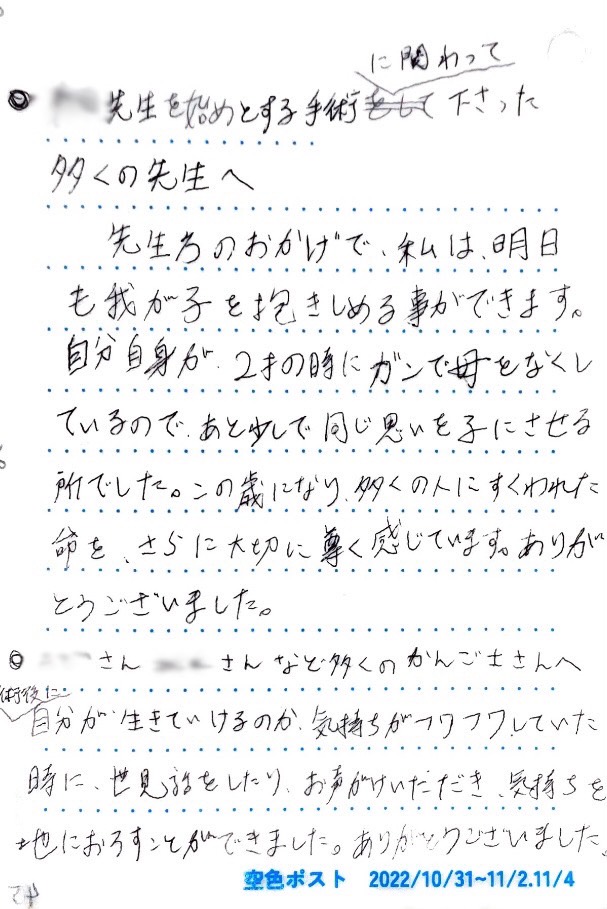 に関わって
先生を始めとする手術をして下さった
多くの先生へ
先生方のおかげで、私は、明日
も我が子を抱きしめる事ができます。
自分自身が、2才の時にガンで母をなくし
ているので、あと少しで同じ思いを子にさせる
所でした。この歳になり、多くの人にすくわれた
命を、さらに大切に尊く感じています。ありが
とうございました。
さん さんなど多くのかんご士さんへ
術後に
自分が生きていけるのか、気持ちがフワフワしていた
時に、世見話をしたり、お声がけいただき、気持ちを
地におろすことができました。ありがとうございました。
空色ポスト 2022/10/31~11/2.11/4